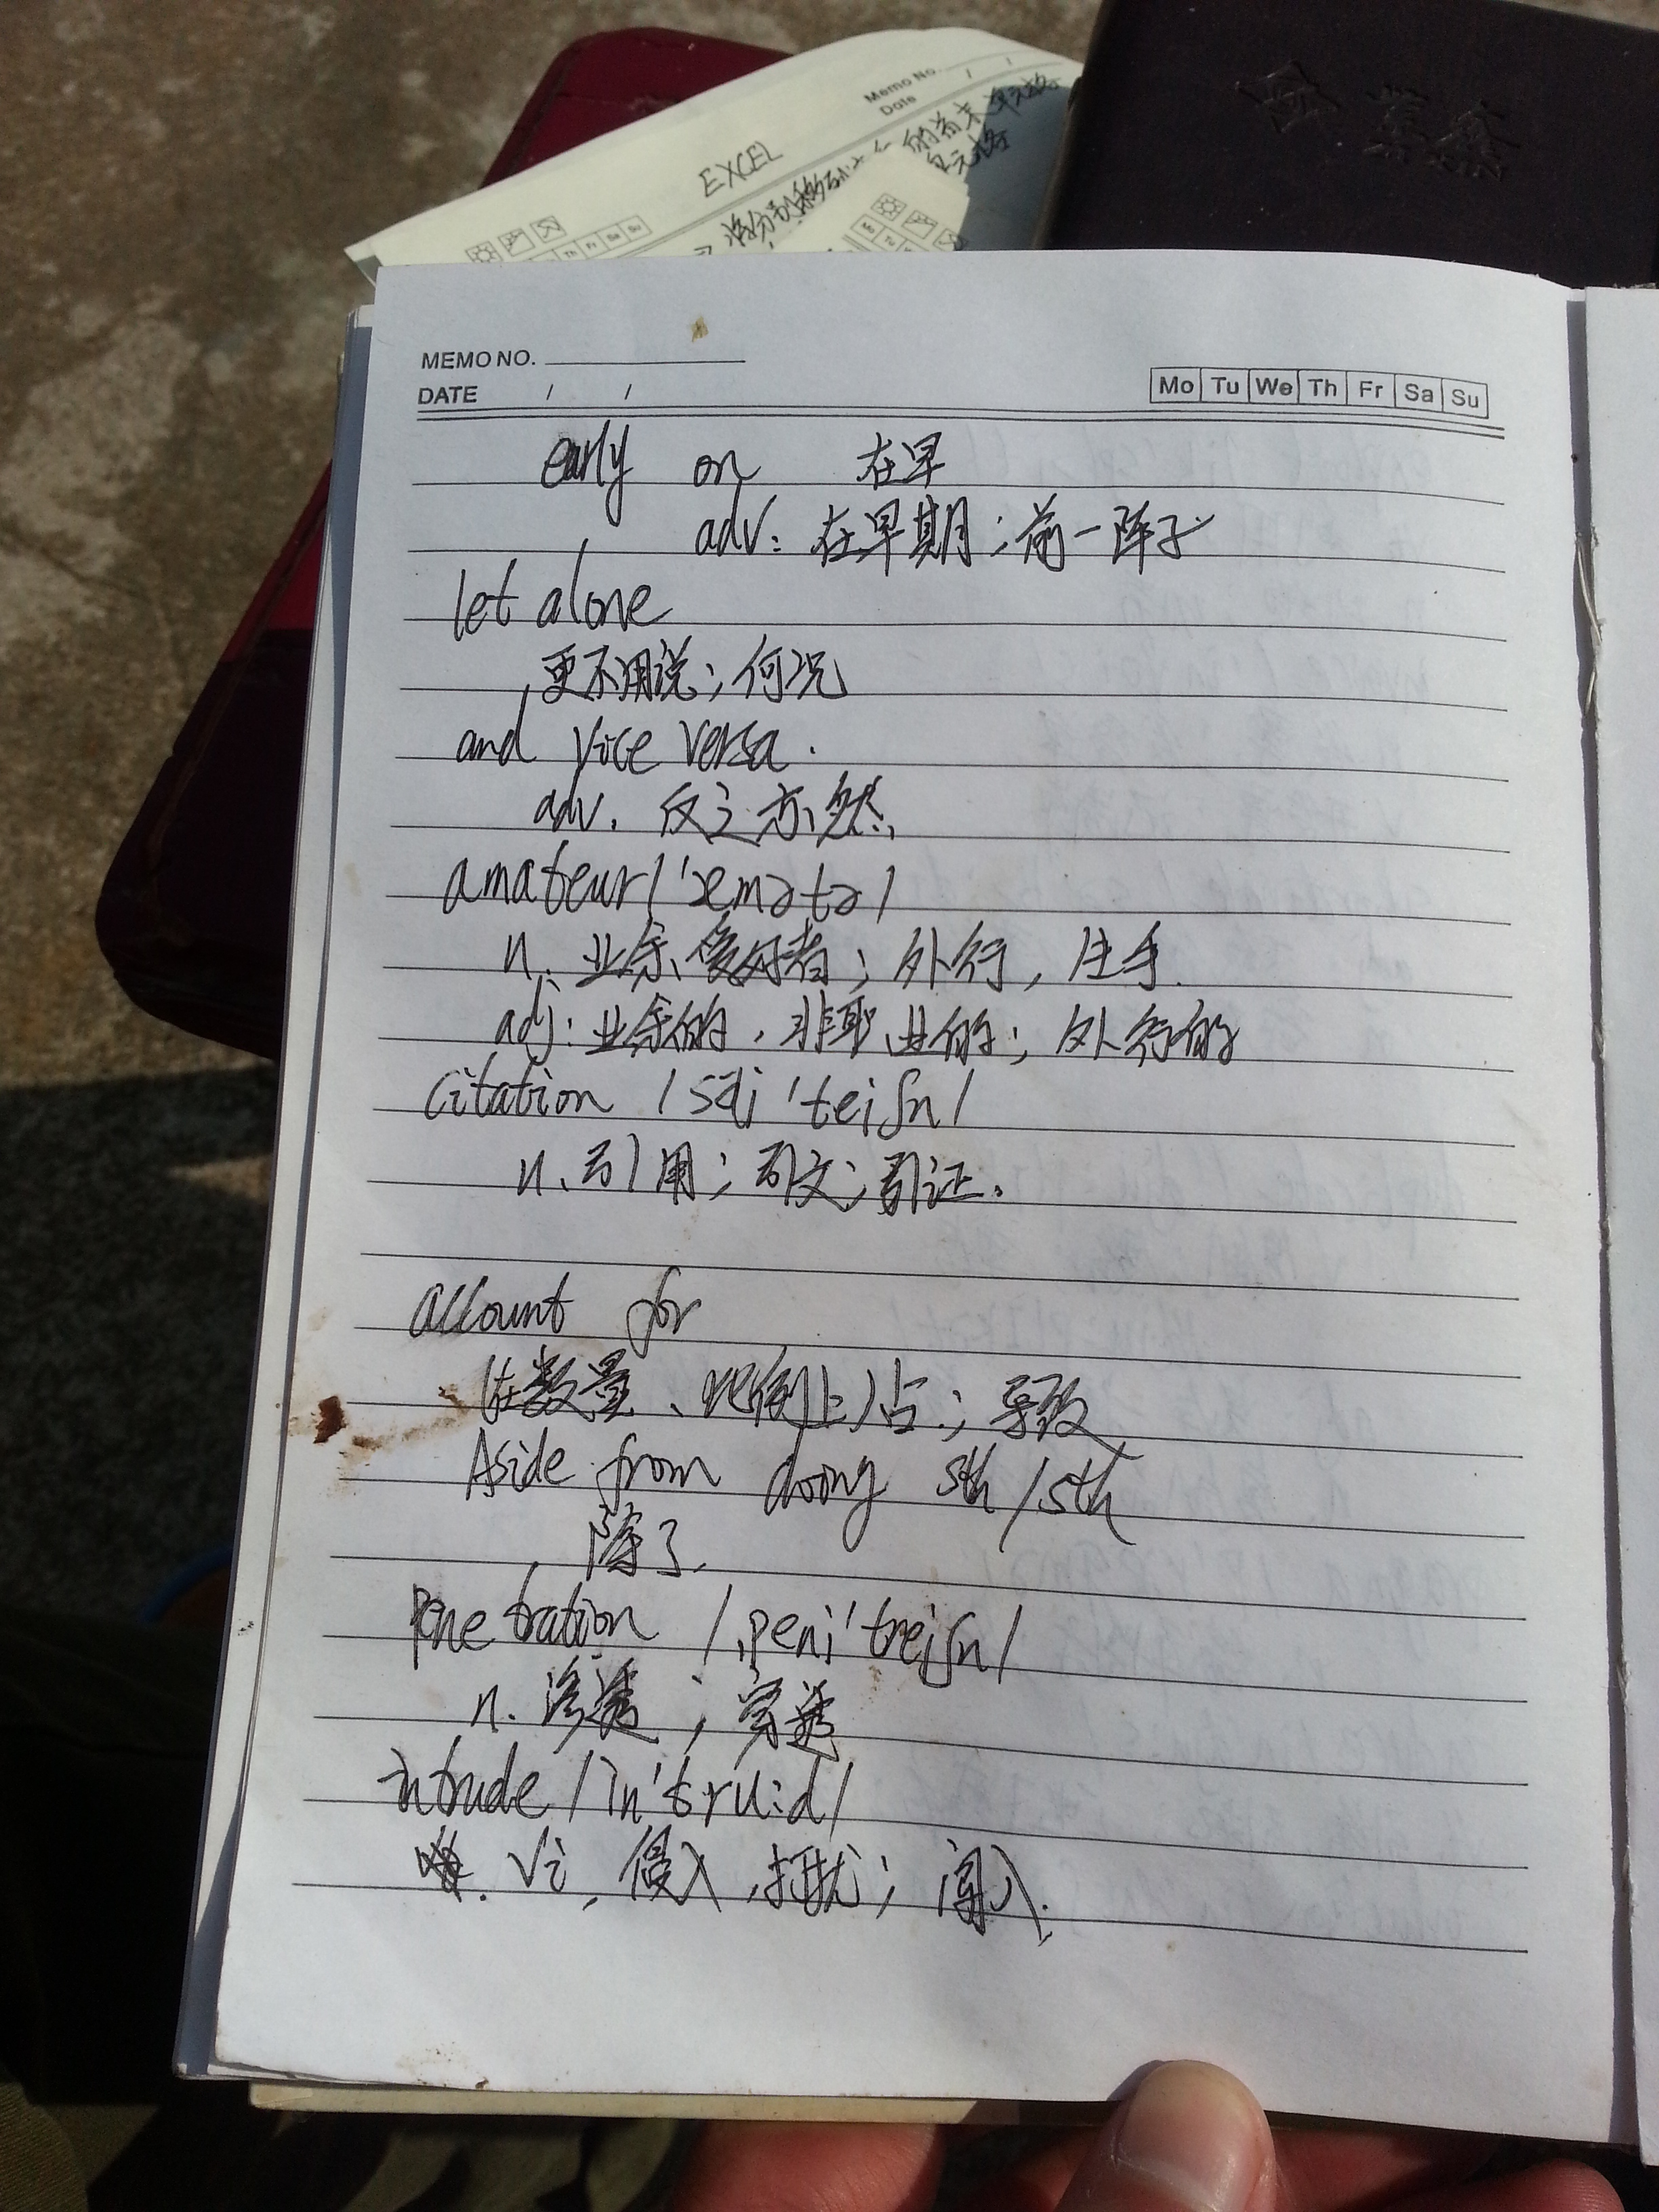 EXCEL
Memo No.
Date / /
单元格
MEMO NO.
DATE / /
Mo Tu We Th Fr Sa Su
early on 在早
adv: 在早期;前一阵子
let alone
更不用说;何况
and vice versa.
adv. 反之亦然
amateur /'æmətə/
n. 业余爱好者;外行,生手.
adj: 业余的,非职业的;外行的
citation /sai'teiʃn/
n. 引用;引文;引证.
account for
(在数量、比例上)占;导致
Aside from doing sth/sth
除了.
penetration /,peni'treiʃn/
n. 渗透;穿透
intrude /in'tru:d/
vi, 侵入,打扰;闯入.